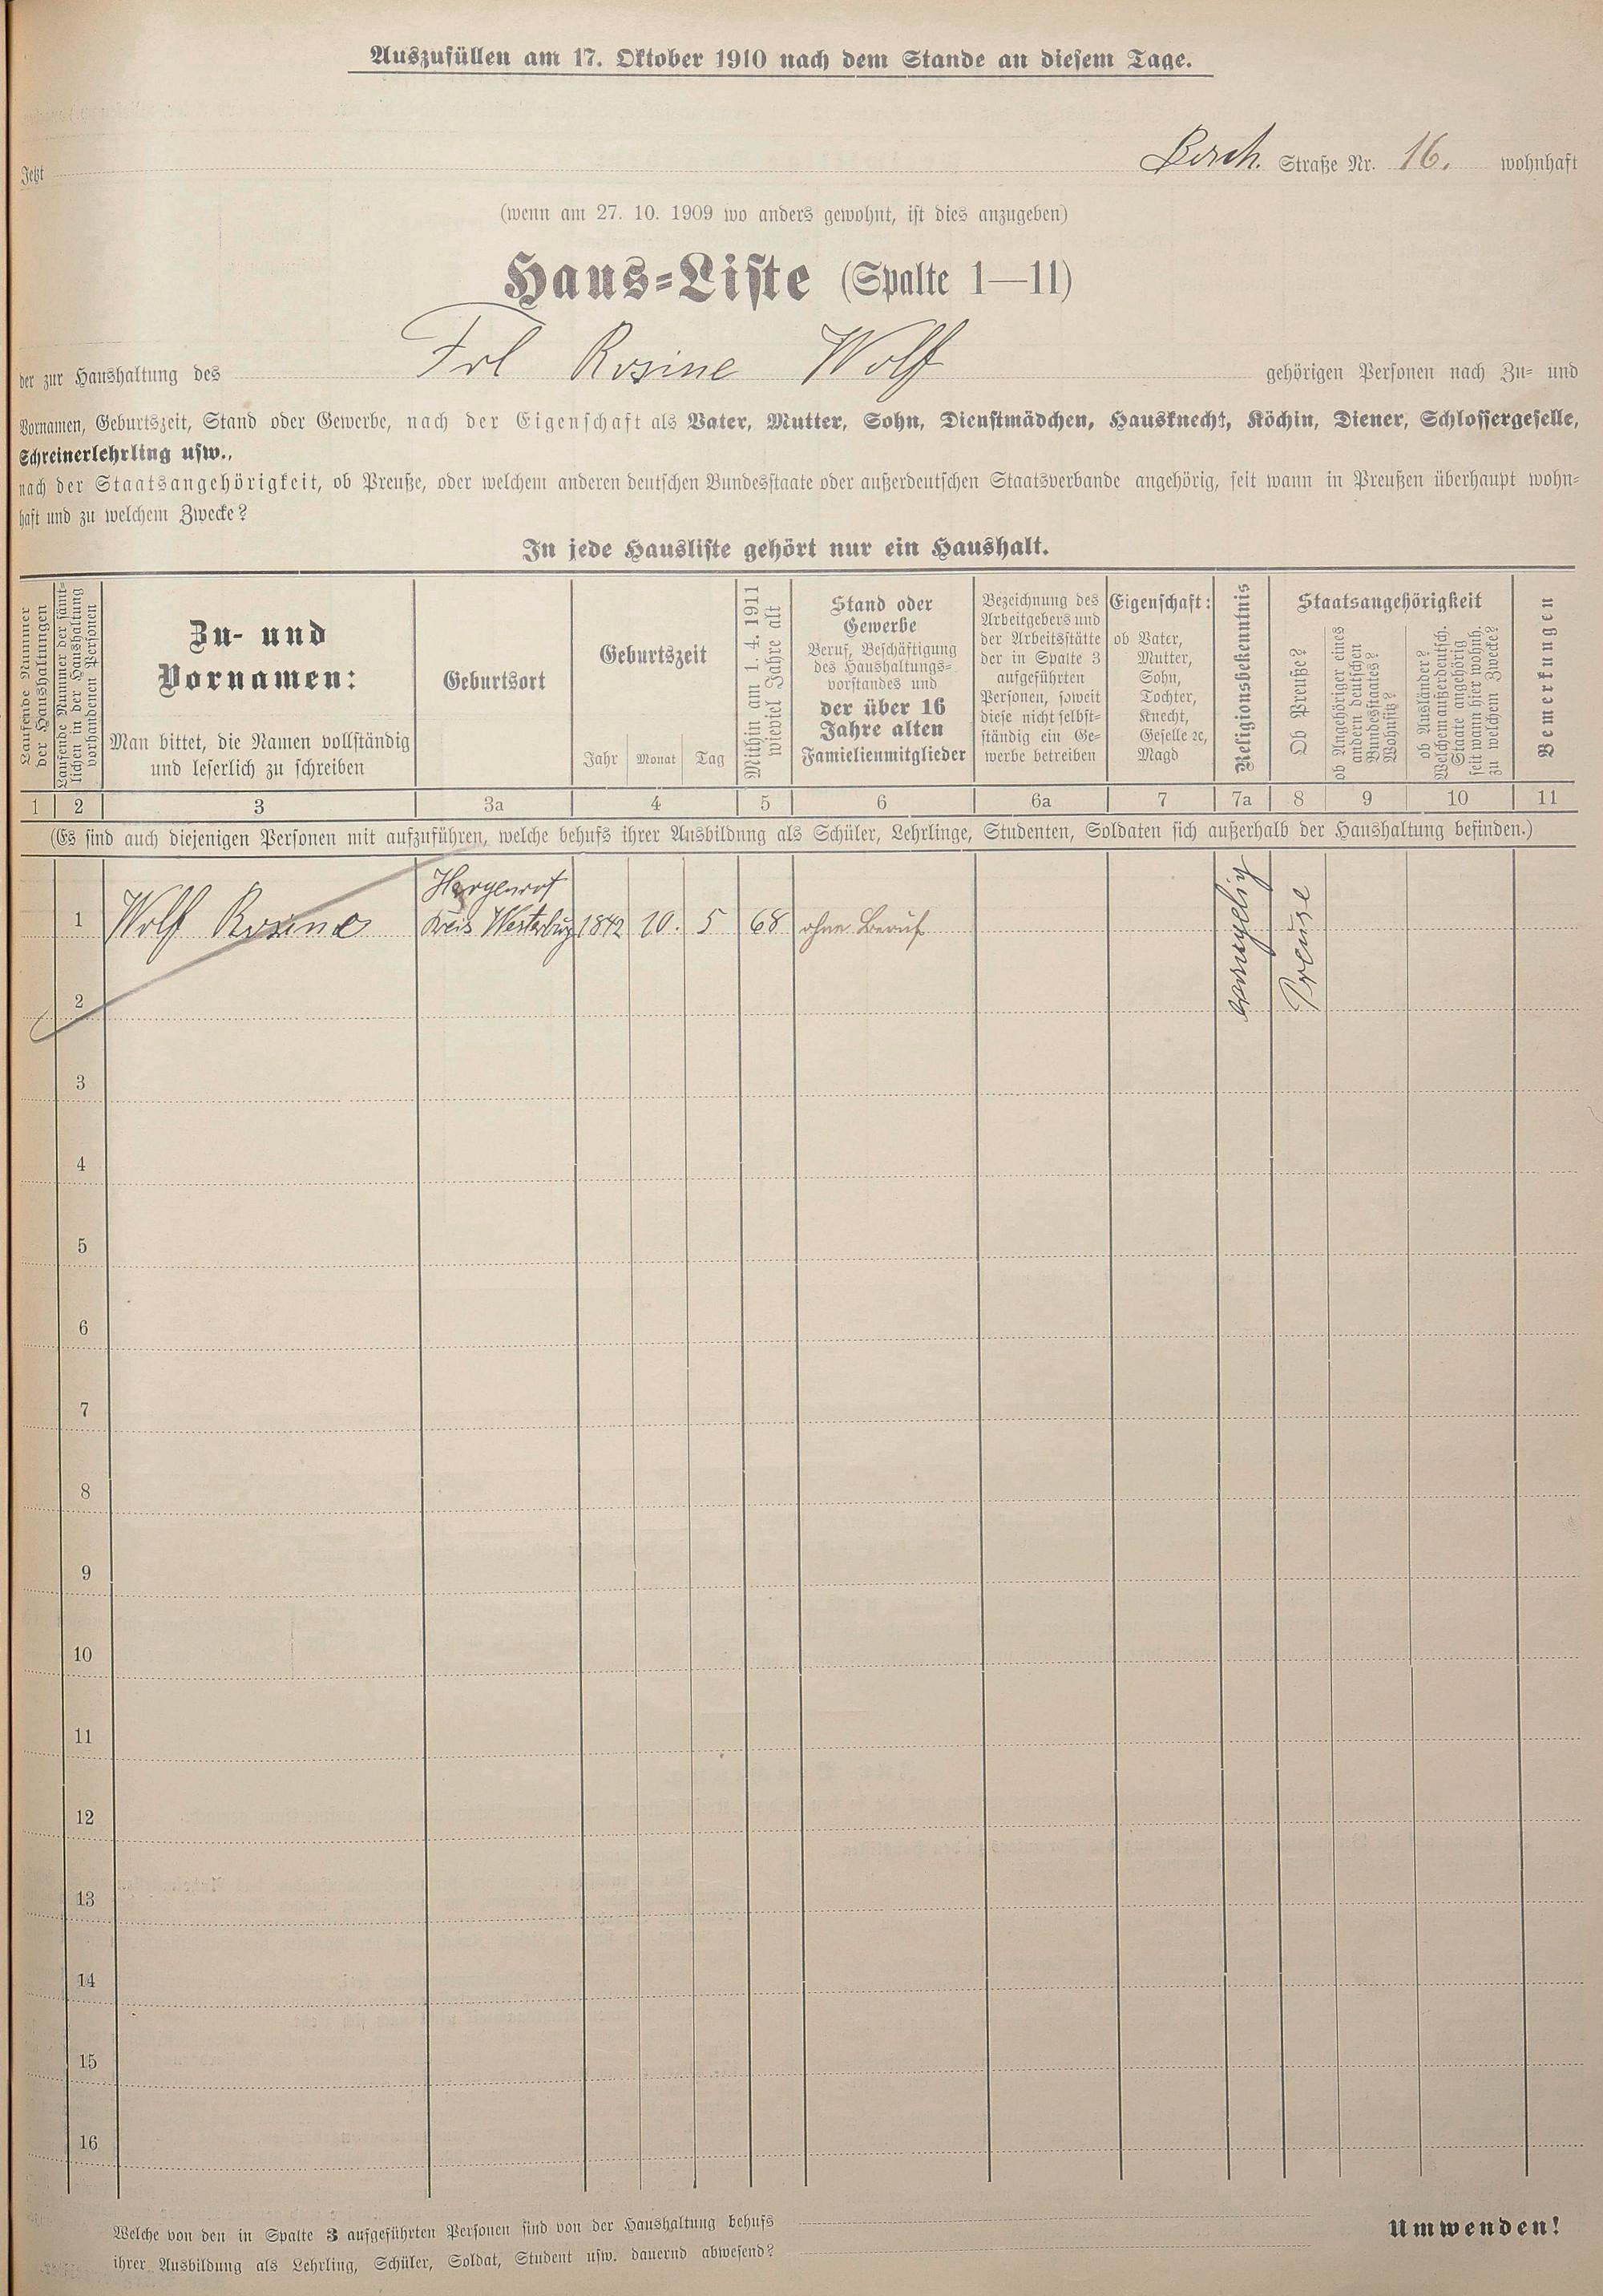 Auszufüllen am 17. Oktober 1910 nach dem Stande an diesem Tage.
Jetzt Straße Nr. 16. wohnhaft
(wenn am 27. 10. 1909 wo anders gewohnt, ist dies anzugeben)
Haus-Liste (Spalte 1—11)
der zur Haushaltung des Frl Rosine Wolf gehörigen Personen nach Zu- und
Vornamen, Geburtszeit, Stand oder Gewerbe, nach der Eigenschaft als Vater, Mutter, Sohn, Dienstmädchen, Hausknecht, Köchin, Diener, Schlossergeselle,
Schreinerlehrling usw.,
nach der Staatsangehörigkeit, ob Preuße, oder welchem anderen deutschen Bundesstaate oder außerdeutschen Staatsverbande angehörig, seit wann in Preußen überhaupt wohn-
haft und zu welchem Zwecke?
In jede Hausliste gehört nur ein Haushalt.
Laufende Nummer
der Haushaltungen
Laufende Nummer der sämt-
lichen in der Haushaltung
vorhandenen Personen
Zu- und
Vornamen:
Man bittet, die Namen vollständig
und leserlich zu schreiben
Geburtsort
Geburtszeit
Jahr Monat Tag
Mithin am 1. 4. 1911
wieviel Jahre alt
Stand oder
Gewerbe
Beruf, Beschäftigung
des Haushaltungs-
vorstandes und
der über 16
Jahre alten
Familienmitglieder
Bezeichnung des
Arbeitgebers und
der Arbeitsstätte
der in Spalte 3
aufgeführten
Personen, soweit
diese nicht selbst-
ständig ein Ge-
werbe betreiben
Eigenschaft:
ob Vater,
Mutter,
Sohn,
Tochter,
Knecht,
Geselle ꝛc,
Magd
Religionsbekenntnis
Staatsangehörigkeit
Ob Preuße?
ob Angehöriger eines
andern deutschen
Bundesstaates?
Wohnsitz?
ob Ausländer?
Welchem außerdeutsch.
Staate angehörig
seit wann hier wohnh.
zu welchem Zwecke?
Bemerkungen
1 2 3 3a 4 5 6 6a 7 7a 8 9 10 11
(Es sind auch diejenigen Personen mit aufzuführen, welche behufs ihrer Ausbildung als Schüler, Lehrlinge, Studenten, Soldaten sich außerhalb der Haushaltung befinden.)
Hergenrot
1 Wolf Rosine Kreis Westerburg 1842 10. 5 68 ohne Beruf evangelig Preuse
2
3
4
5
6
7
8
9
10
11
12
13
14
15
16
Welche von den in Spalte 3 aufgeführten Personen sind von der Haushaltung behufs
ihrer Ausbildung als Lehrling, Schüler, Soldat, Student usw. dauernd abwesend?
Umwenden!